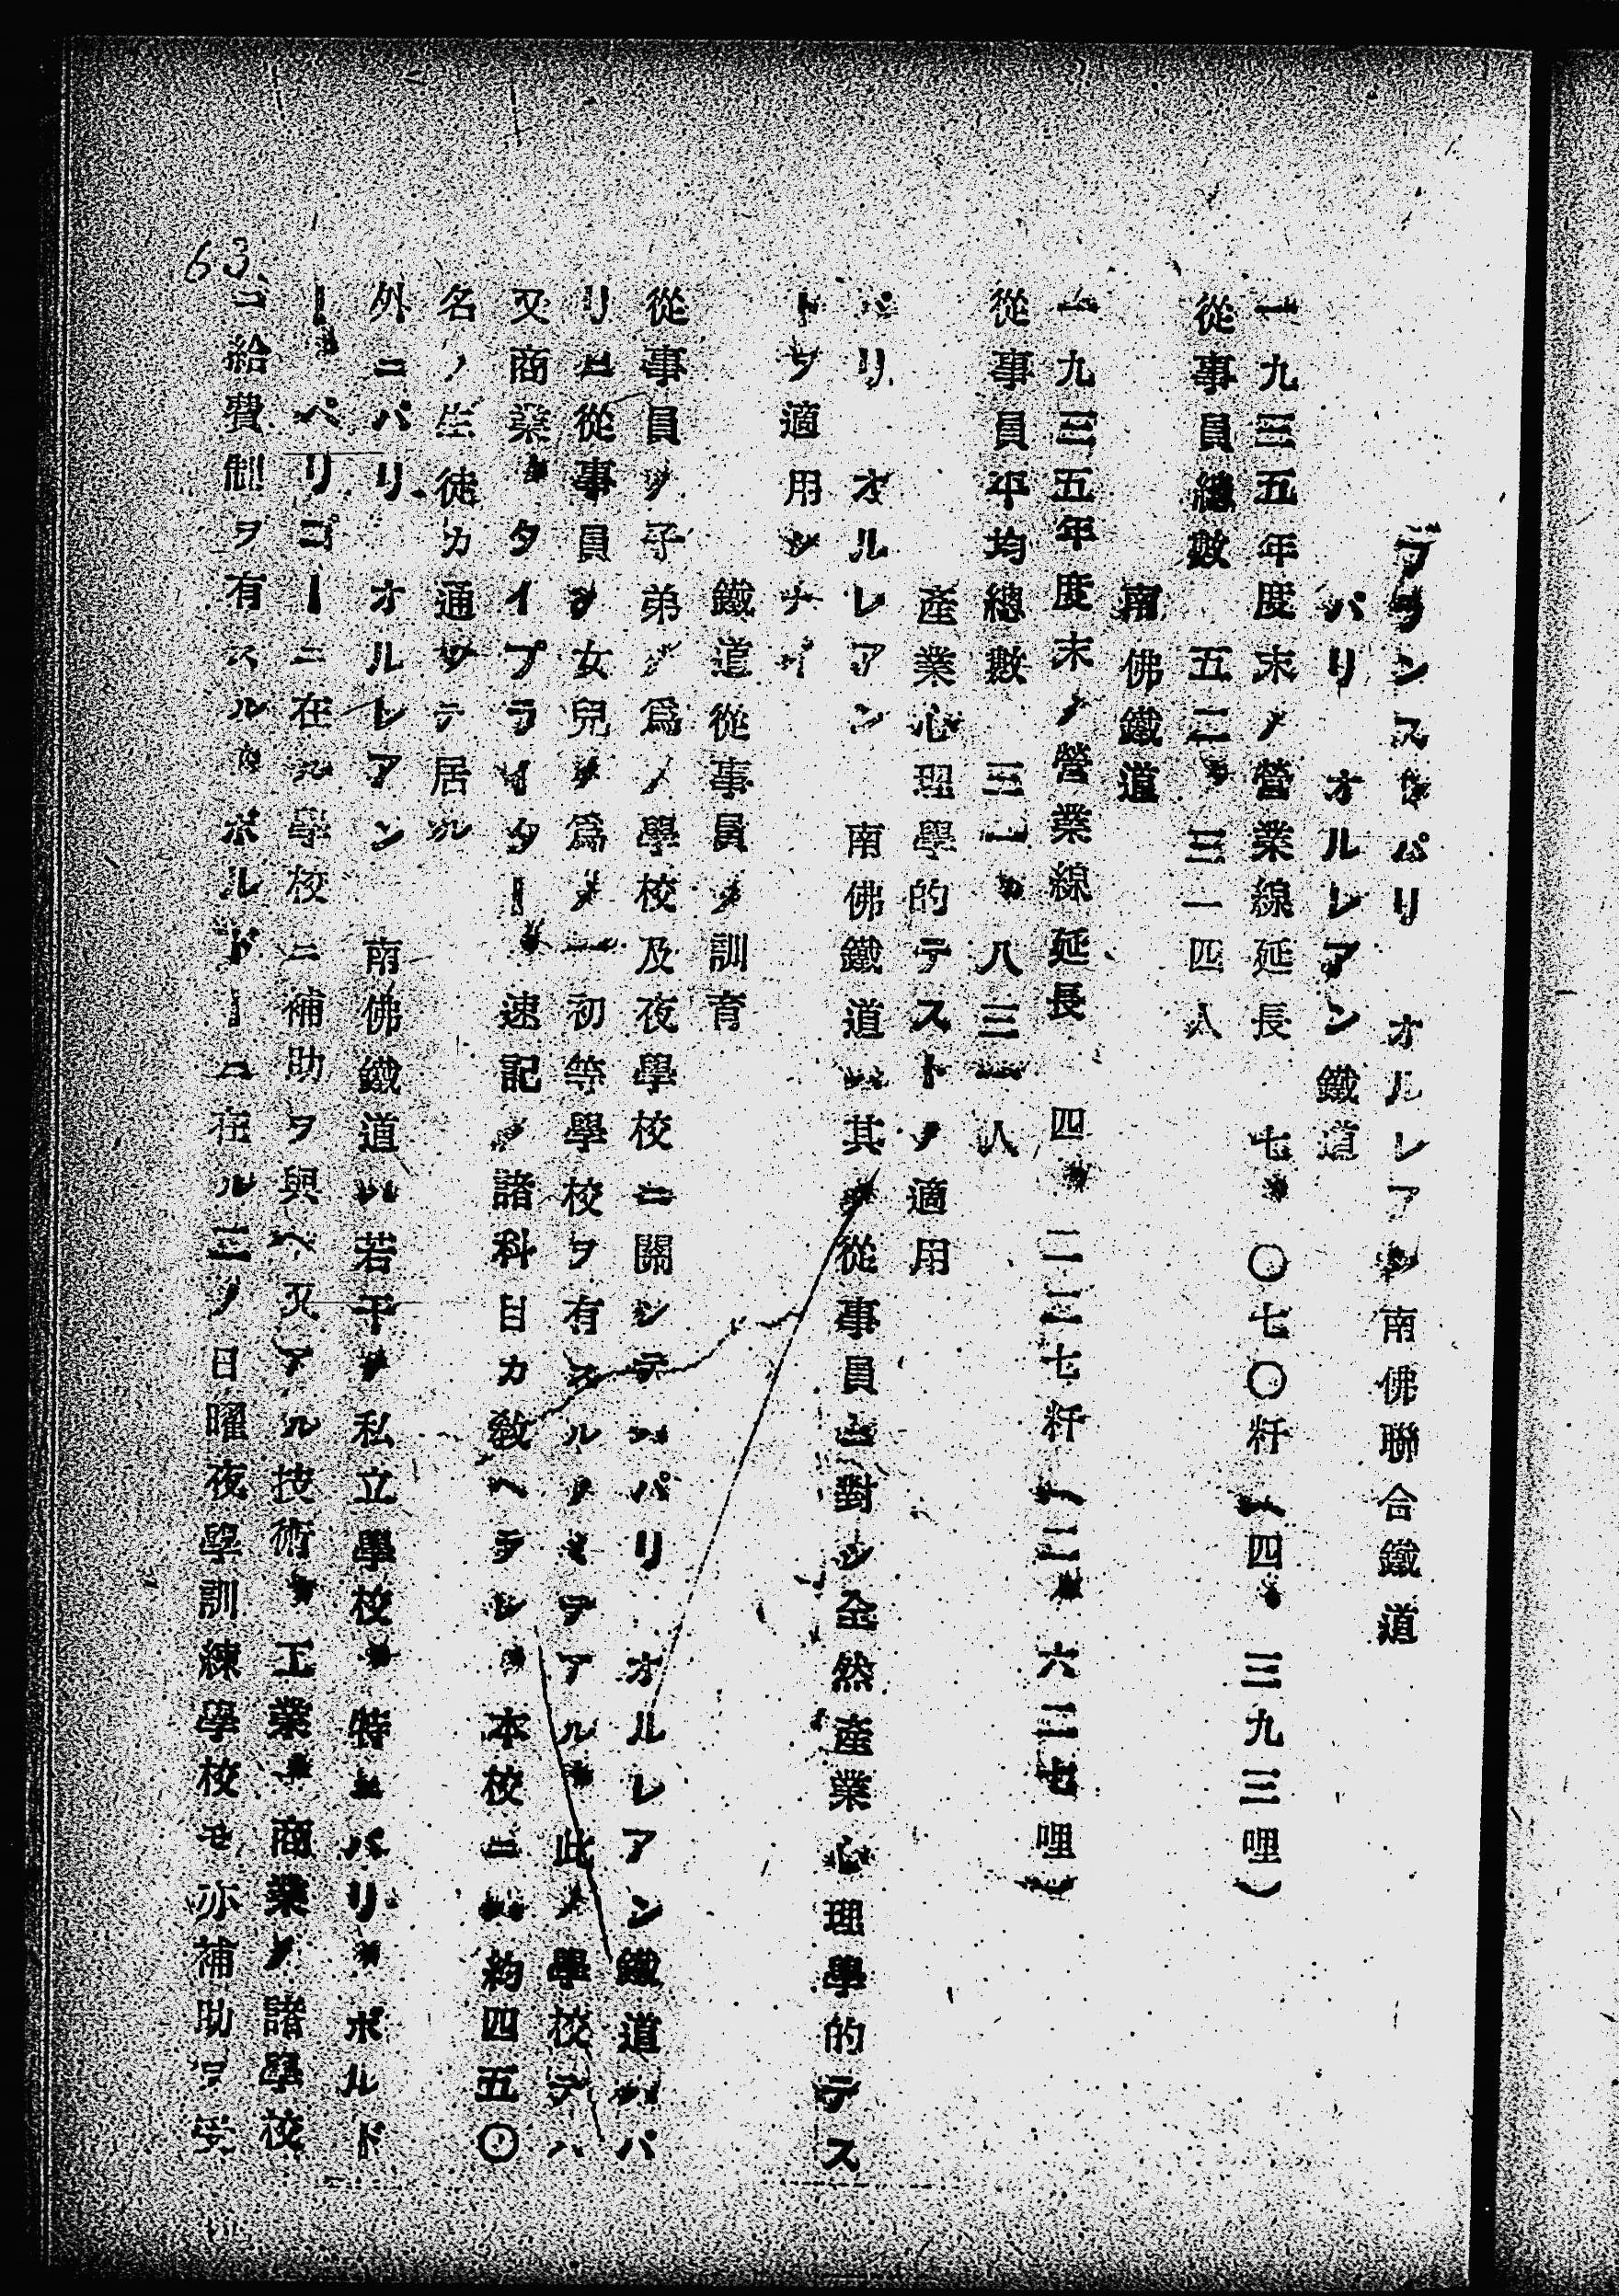 フランス、パリ オルレアン、南佛聯合鐵道
パリ オルレアン鐵道
一九三五年度末ノ營業線延長 七、〇七〇粁(四、三九三哩)
從事員總數 五二、三一四人
南佛鐵道
一九三五年度末ノ營業線延長 四、二三七粁(二、六三七哩)
從事員平均總數 三一、八三一人
產業心理學的テストノ適用
パリ オルレアン 南佛鐵道ハ其ノ從事員ニ對シ全然產業心理學的テス
トヲ適用シナイ
鐵道從事員ノ訓育
從事員ノ子弟ノ爲ノ學校及夜學校ニ關シテハパリ オルレアン鐵道ハパ
リニ從事員ノ女兒ノ爲ノ一初等學校ヲ有スルノミデアル、此ノ學校デハ
又商業、タイプライター、速記ノ諸科目カ敎ヘラレ、本校ニハ約四五〇
名ノ生徒カ通ツテ居ル
外ニパリ オルレアン 南佛鐵道ハ若干ノ私立學校、特ニパリ、ボルド
ー、ペリゴーニ在ル學校ニ補助ヲ與ヘ又アル技術、工業、商業ノ諸學校
ニ給費制ヲ有スル、ボルドーニ在ル三ノ日曜夜學訓練學校モ亦補助ヲ受
63